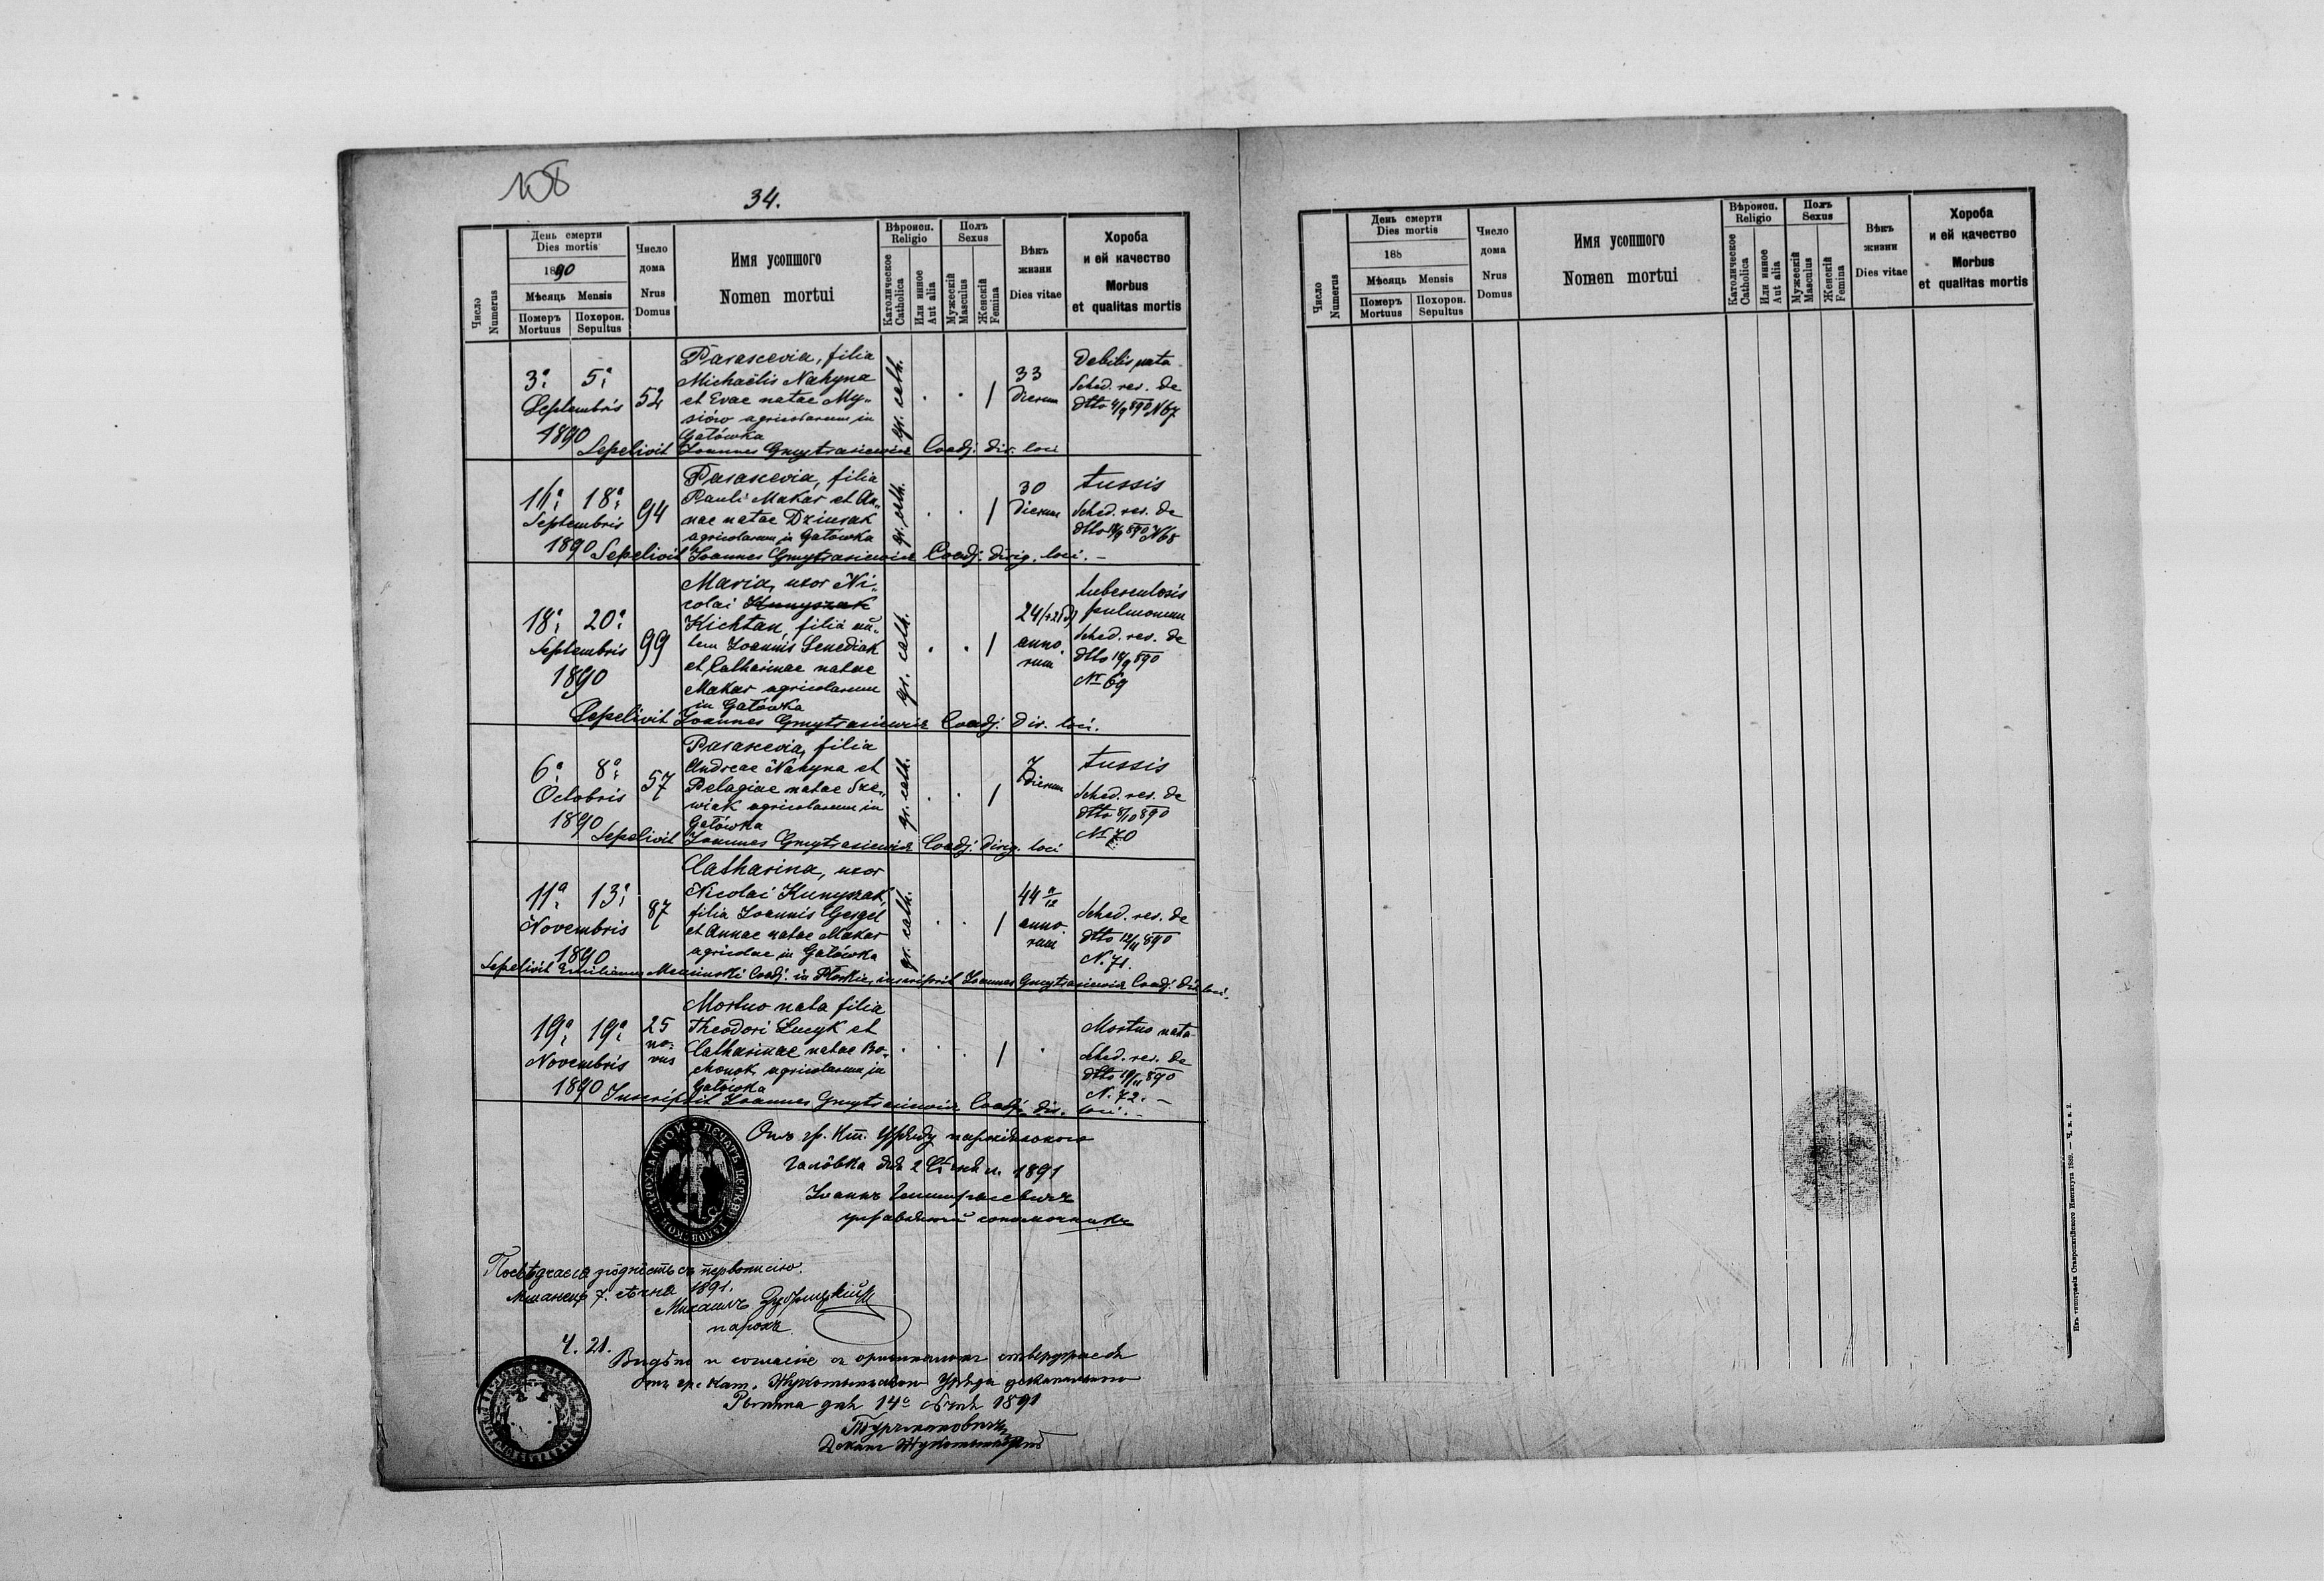 108
34.
Число
Numerus
День смерти
Dies mortis
1890
Мѣсяць Mensis
Померъ
Mortuus
Похорон.
Sepultus
Число
дома
Nrus
Domus
Имя усопшого
Nomen mortui
Вѣроисп.
Religio
Католическое
Catholica
Или инное
Aut alia
Полъ
Sexus
Мужескій
Masculus
Женскій
Femina
Вѣкъ
жизни
Dies vitae
Хороба
и ей качество
Morbus
et qualitas mortis
3a 5a
Septembris
1890
52
Parascevia, filia
Michaëlis Nahyna
et Evae natae My-
siów agricolarum in
Gałówka
gr. cath.
1
33
dierum
Debilis nata
Sched. rev. de
dtto 4/9 890 N 67
Sepelivit Joannes Gmytrasiewicz Coadj. dir. loci
16a 18a
Septembris
1890
94
Parascevia, filia
Pauli Makar et An-
nae natae Dziurak
agricolarum in Gałówka
gr. cath.
1
30
dierum
tussis
Sched. rev. de
N 68
Sepelivit Joannes Gmytrasiewicz Coadj. dirig. loci. –
18a 20a
Septembris
1890
99
Maria, uxor Ni-
colai Kunyszak
Kichtan, filia au-
tem Joannis Senediak
et Catharinae natae
Makar agricolarum
in Gałówka
gr. cath.
1
24
anno-
rum
tuberculosis
pulmonum
Sched. rev. de
dtto 18/9 890
No 69
Sepelivit Joannes Gmytrasiewicz Coadj. dir. loci.
6a 8a
Octobris
1890
57
Parascevia, filia
Andreae Nahyna et
Pelagiae natae Sze-
wiak agricolarum in
Gałówka
gr. cath.
1
7
dierum
tussis
Sched. rev. de
dtto 8/10 890
No 70
Sepelivit Joannes Gmytrasiewicz Coadj. dirig. loci
11a 13a
Novembris
1890
87
Catharina, uxor
Nicolai Kunyszak,
filia Joannis Gergel
et Annae natae Makar
agricolae in Gałówka
gr. cath.
1
44
anno-
rum
Sched. rev. de
dtto 12/11 890
N. 71.
Sepelivit Emilianus Coadj. in Płoskie, inscripsit Joannes Gmytrasiewicz Coadj. dir. loci.
19a 19a
Novembris
1890
25
no-
vus
Mortuo nata filia
Theodori Lucyk et
Catharinae natae Bo-
agricolarum in
Gałówka
1
Mortuo nata
Sched. rev. de
dtto 19/11 890
N. 72. –
Inscripsit Joannes Gmytrasiewicz Coadj. dir. loci. –
Отъ гр. кат. Уряду парохіяльного
Галôвка дня 2 Сѣчня 1891
Іоаннъ Гмитрасевичъ
управляющій сопомочникъ
Посвѣдчаеся згôднôсть съ первописію.
Мшанець 7. сѣчня 1891.
Михаилъ Зубрицкій
парохъ
Ч. 21.
Видѣно и согласіе съ оригиналомъ ствердяеся
отъ гр. кат. Жукотинского Уряда деканального
дня 14 сѣчня 1891
Деканъ
День смерти
Dies mortis
188
Мѣсяць Mensis
Померъ
Mortuus
Похорон.
Sepultus
Число
Numerus
Число
дома
Nrus
Domus
Имя усопшого
Nomen mortui
Вѣроисп.
Religio
Католическое
Catholica
Или инное
Aut alia
Полъ
Sexus
Мужескій
Masculus
Женскій
Femina
Вѣкъ
жизни
Dies vitae
Хороба
и ей качество
Morbus
et qualitas mortis
Изъ типографіи Ставропигійского Института 1889. — Ч. к. в. 2.